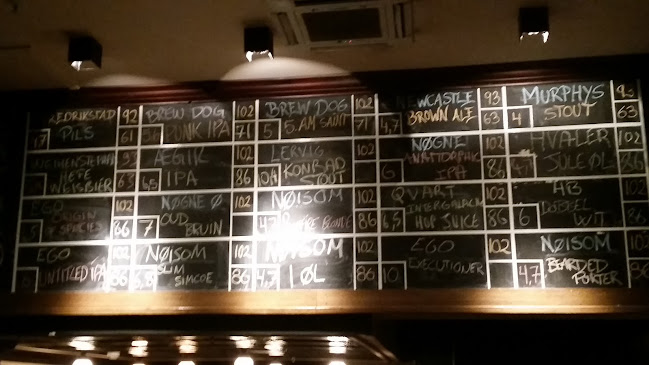 FREDRIKSTAD 92
PILS 61
BREW DOG 102
PUNK IPA 71
BREW DOG 102
5 5.AM SAINT 71
NEWCASTLE 93
4,7 BROWN ALE 63
MURPHYS 93
4 STOUT 63
WEIHENSTEPHAN 93
HEFE
WEISBIER 63
ÆGIR 102
6,5 IPA 86
LERVIG 102
KONRAD
STOUT 86
NØGNE 102
6 IPA 86
HVALER 102
JULE ØL 86
EGO 102
5 ORIGIN
OF SPECIES 86
NØGNE Ø 102
7 OUD
BRUIN 86
NØISOM 102
4,7 86
QVART 102
6,5 INTERGALACTIC
HOP JUICE 86
ÅB 102
6 DOBBEL
WIT 86
EGO 102
UNTITLED IPA 86
NØISOM 102
SLIM
SIMCOE 86
NØISOM 102
4,7 1 ØL 86
EGO 102
10 EXECUTIONER
NØISOM 102
4,7 BEARDED
PORTER 86